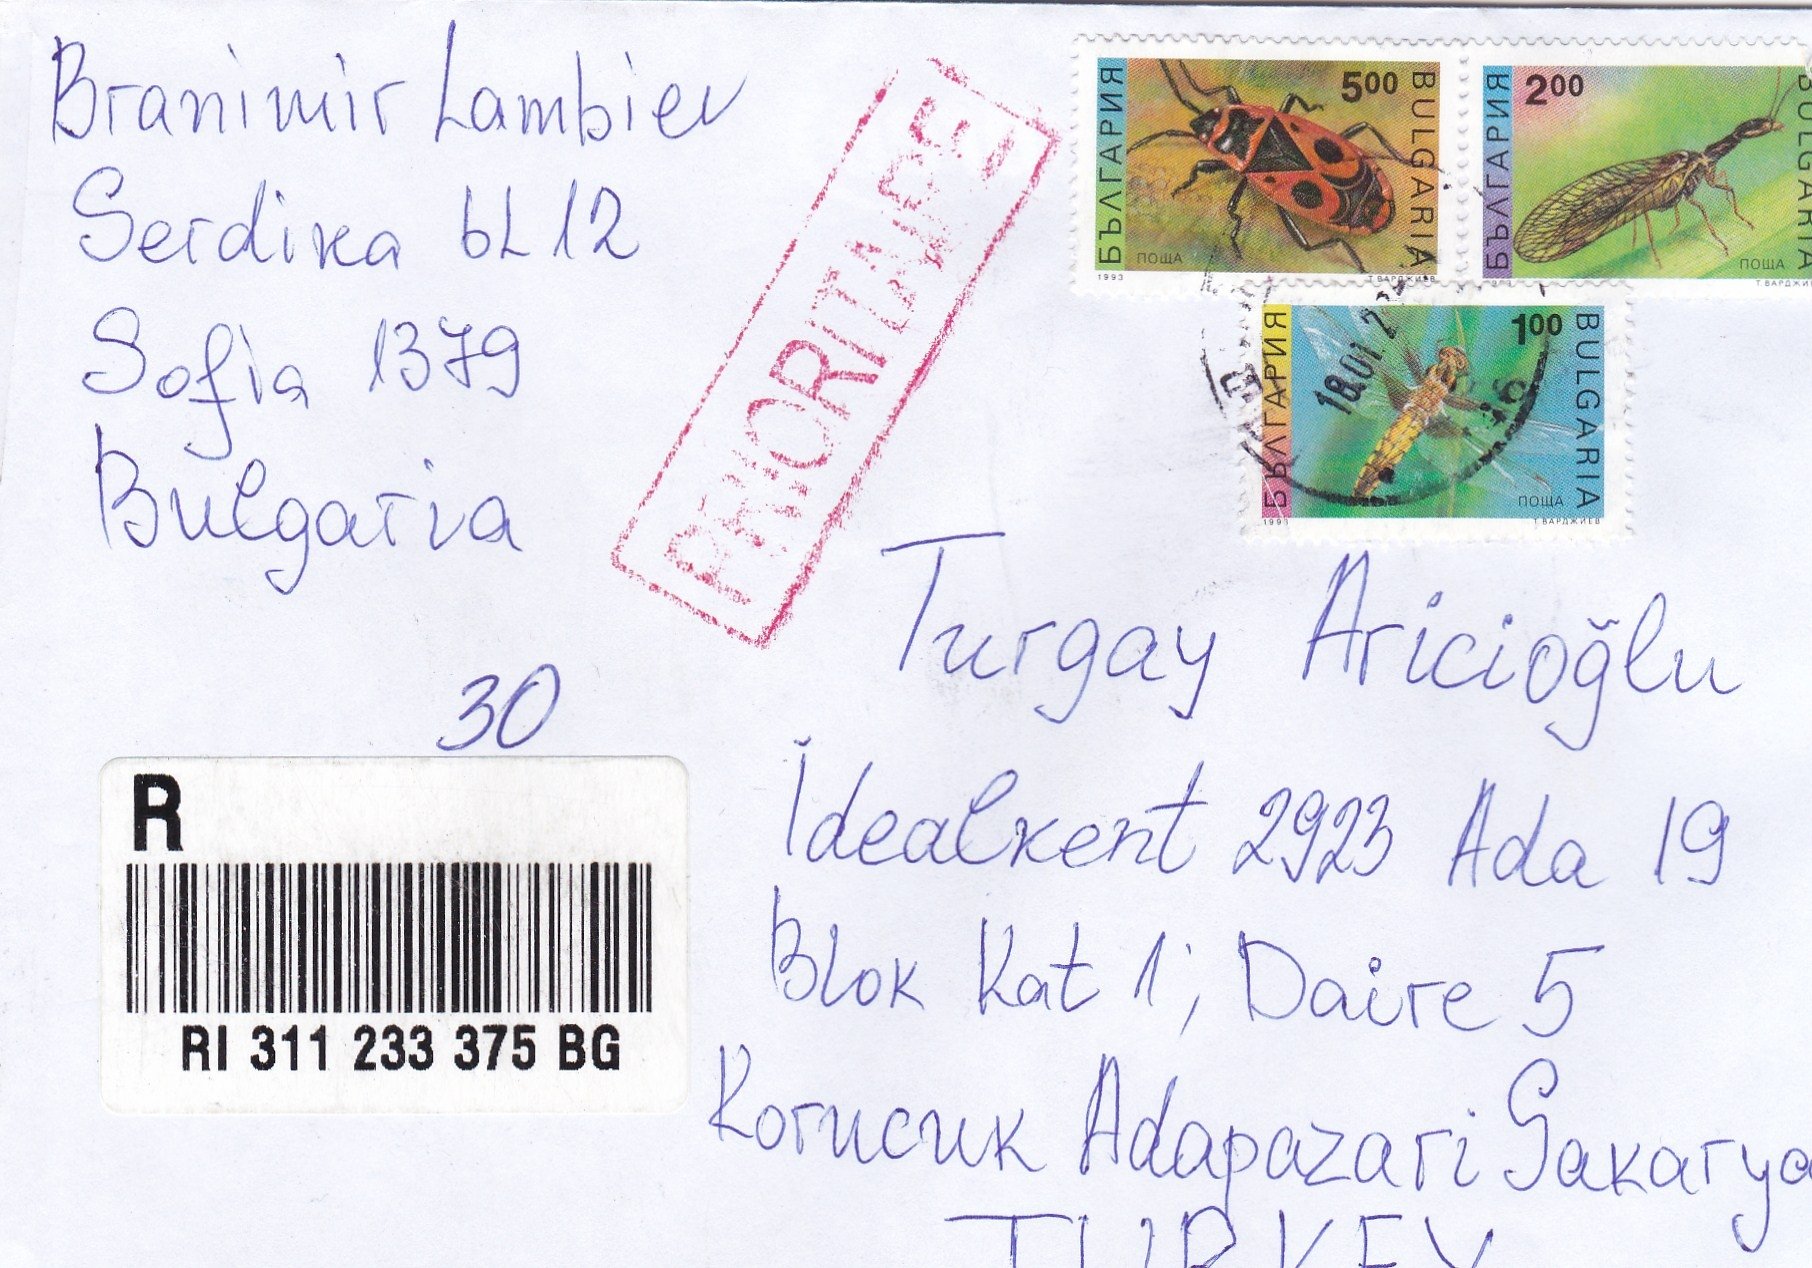 Branimir Lambiev
Serdika bL 12
Sofia 1379
Bulgaria
PRIORITAIRE
БЪЛГАРИЯ
500
BULGARIA
ПОЩА
1993
Т.ВАРДЖИЕВ
БЪЛГАРИЯ
200
BULGARIA
ПОЩА
1993
Т.ВАРДЖИЕВ
БЪЛГАРИЯ
100
BULGARIA
ПОЩА
1993
Т.ВАРДЖИЕВ
18.01.2
30
R
RI 311 233 375 BG
Turgay Aricioğlu
İdealkent 2923 Ada 19
Blok Kat 1; Daire 5
Korucuk Adapazari Sakarya
TURKEY